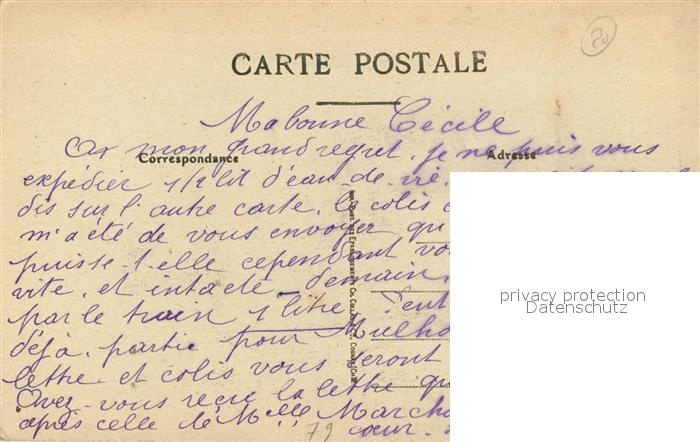 20
CARTE POSTALE
Ma bonne Cécile
Correspondance
Adresse
A mon grand regret, je ne puis vous
expédier 1/2 lit d'eau-de-vie,
dis sur l'autre carte, le colis
m'a été de vous envoyer qu
puisse-t-elle cependant vo
vite, et intacte - demain
par le train 1 litre
déjà partie pour Mulho
lettre et colis vous seront
Avez-vous reçu la lettre qu
après celle de Melle March
cœur
79
privacy protection
Datenschutz